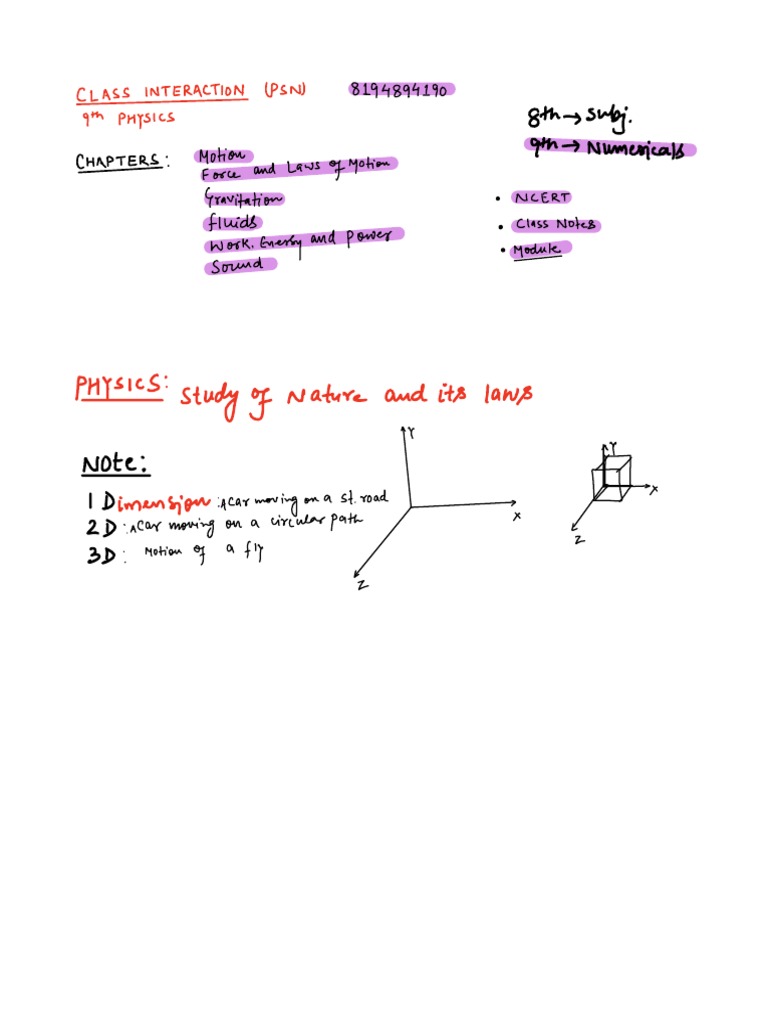 CLASS INTERACTION (PSN) 8194894190
9th PHYSICS
8th → Subj.
9th → Numericals
CHAPTERS: Motion
Force and Laws of Motion
Gravitation
fluids
Work, Energy and Power
Sound
• NCERT
• Class Notes
• Module
PHYSICS: Study of Nature and its laws
Note:
1 Dimension: A Car moving on a st. road
2D: A Car moving on a circular path
3D: Motion of a fly
Y
X
Z
Y
X
Z